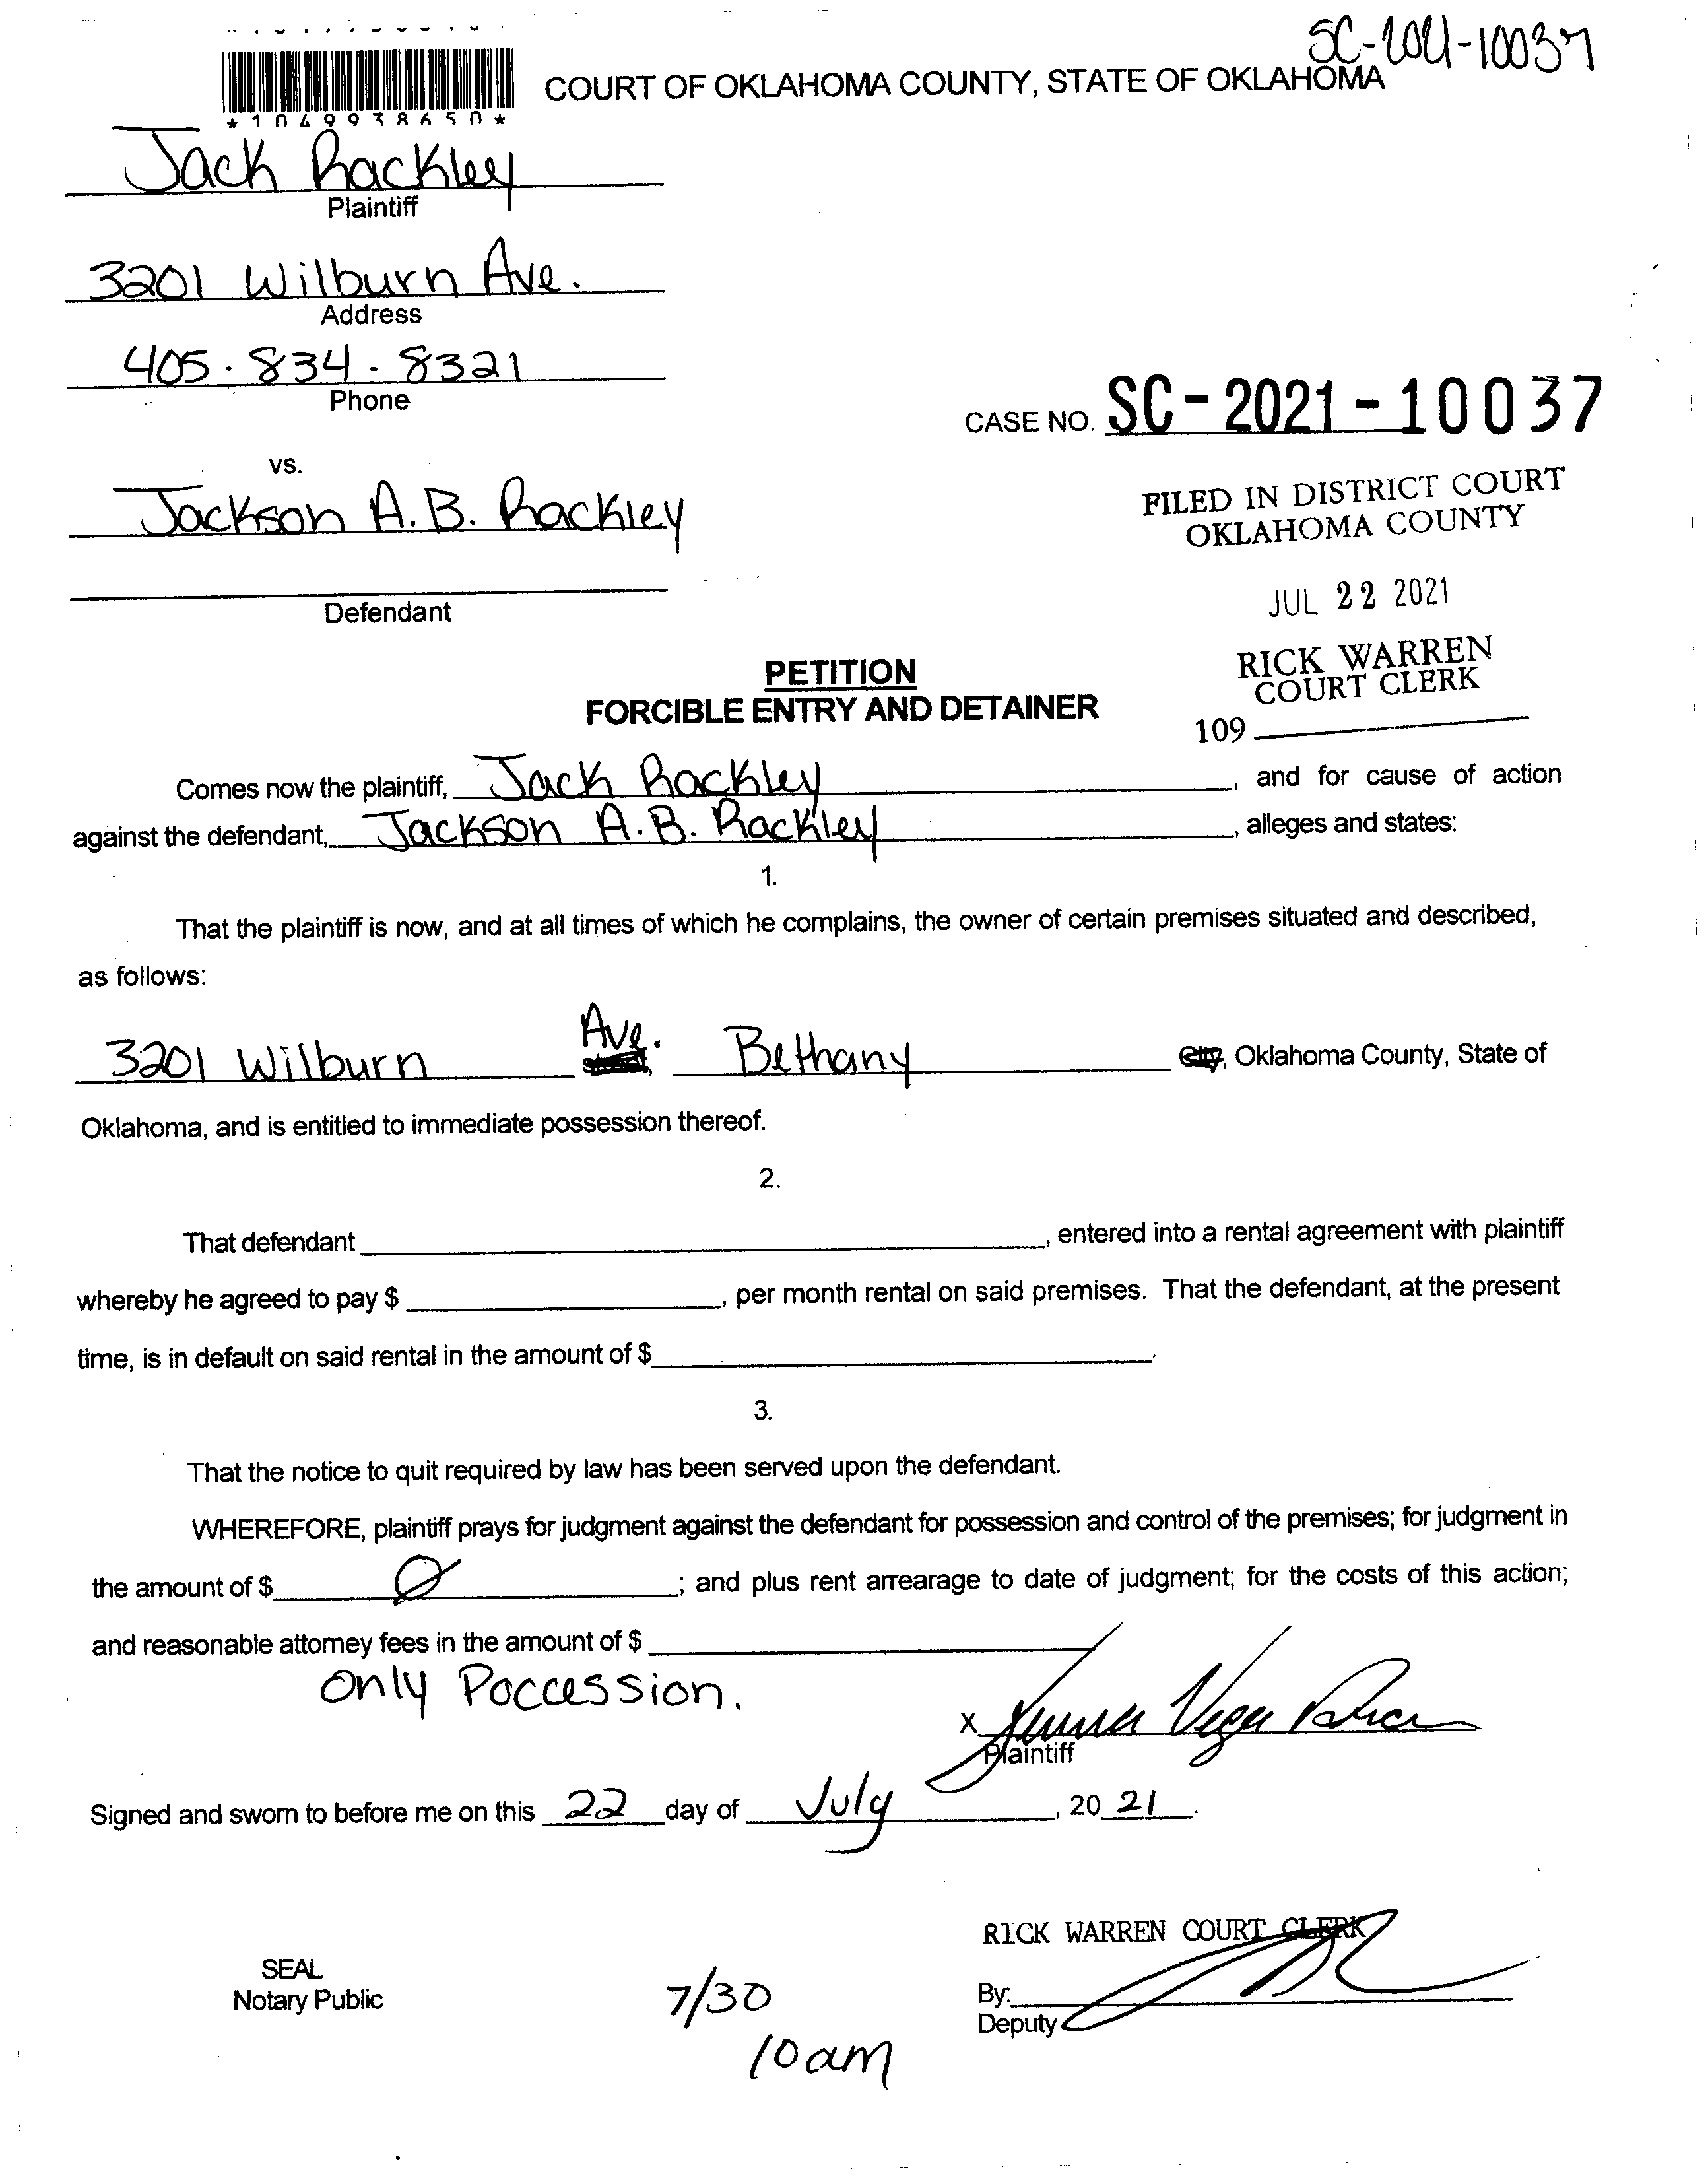 SC-2021-10037
COURT OF OKLAHOMA COUNTY, STATE OF OKLAHOMA
*1049938650*
Jack Rackley
Plaintiff
3201 Wilburn Ave.
Address
405.834.8321
Phone
CASE NO. SC-2021-10037
vs.
Jackson A.B. Rackley
Defendant
FILED IN DISTRICT COURT
OKLAHOMA COUNTY
JUL 22 2021
RICK WARREN
COURT CLERK
109
PETITION
FORCIBLE ENTRY AND DETAINER
Comes now the plaintiff, Jack Rackley, and for cause of action
against the defendant, Jackson A.B. Rackley, alleges and states:
1.
That the plaintiff is now, and at all times of which he complains, the owner of certain premises situated and described,
as follows:
3201 Wilburn Ave. Bethany City, Oklahoma County, State of
Oklahoma, and is entitled to immediate possession thereof.
2.
That defendant , entered into a rental agreement with plaintiff
whereby he agreed to pay $ , per month rental on said premises. That the defendant, at the present
time, is in default on said rental in the amount of $ .
3.
That the notice to quit required by law has been served upon the defendant.
WHEREFORE, plaintiff prays for judgment against the defendant for possession and control of the premises; for judgment in
the amount of $ Ø ; and plus rent arrearage to date of judgment; for the costs of this action;
and reasonable attorney fees in the amount of $
Only Poccession.
X
Plaintiff
Signed and sworn to before me on this 22 day of July, 20 21.
RICK WARREN COURT CLERK
SEAL
Notary Public
By:
Deputy
7/30
10am